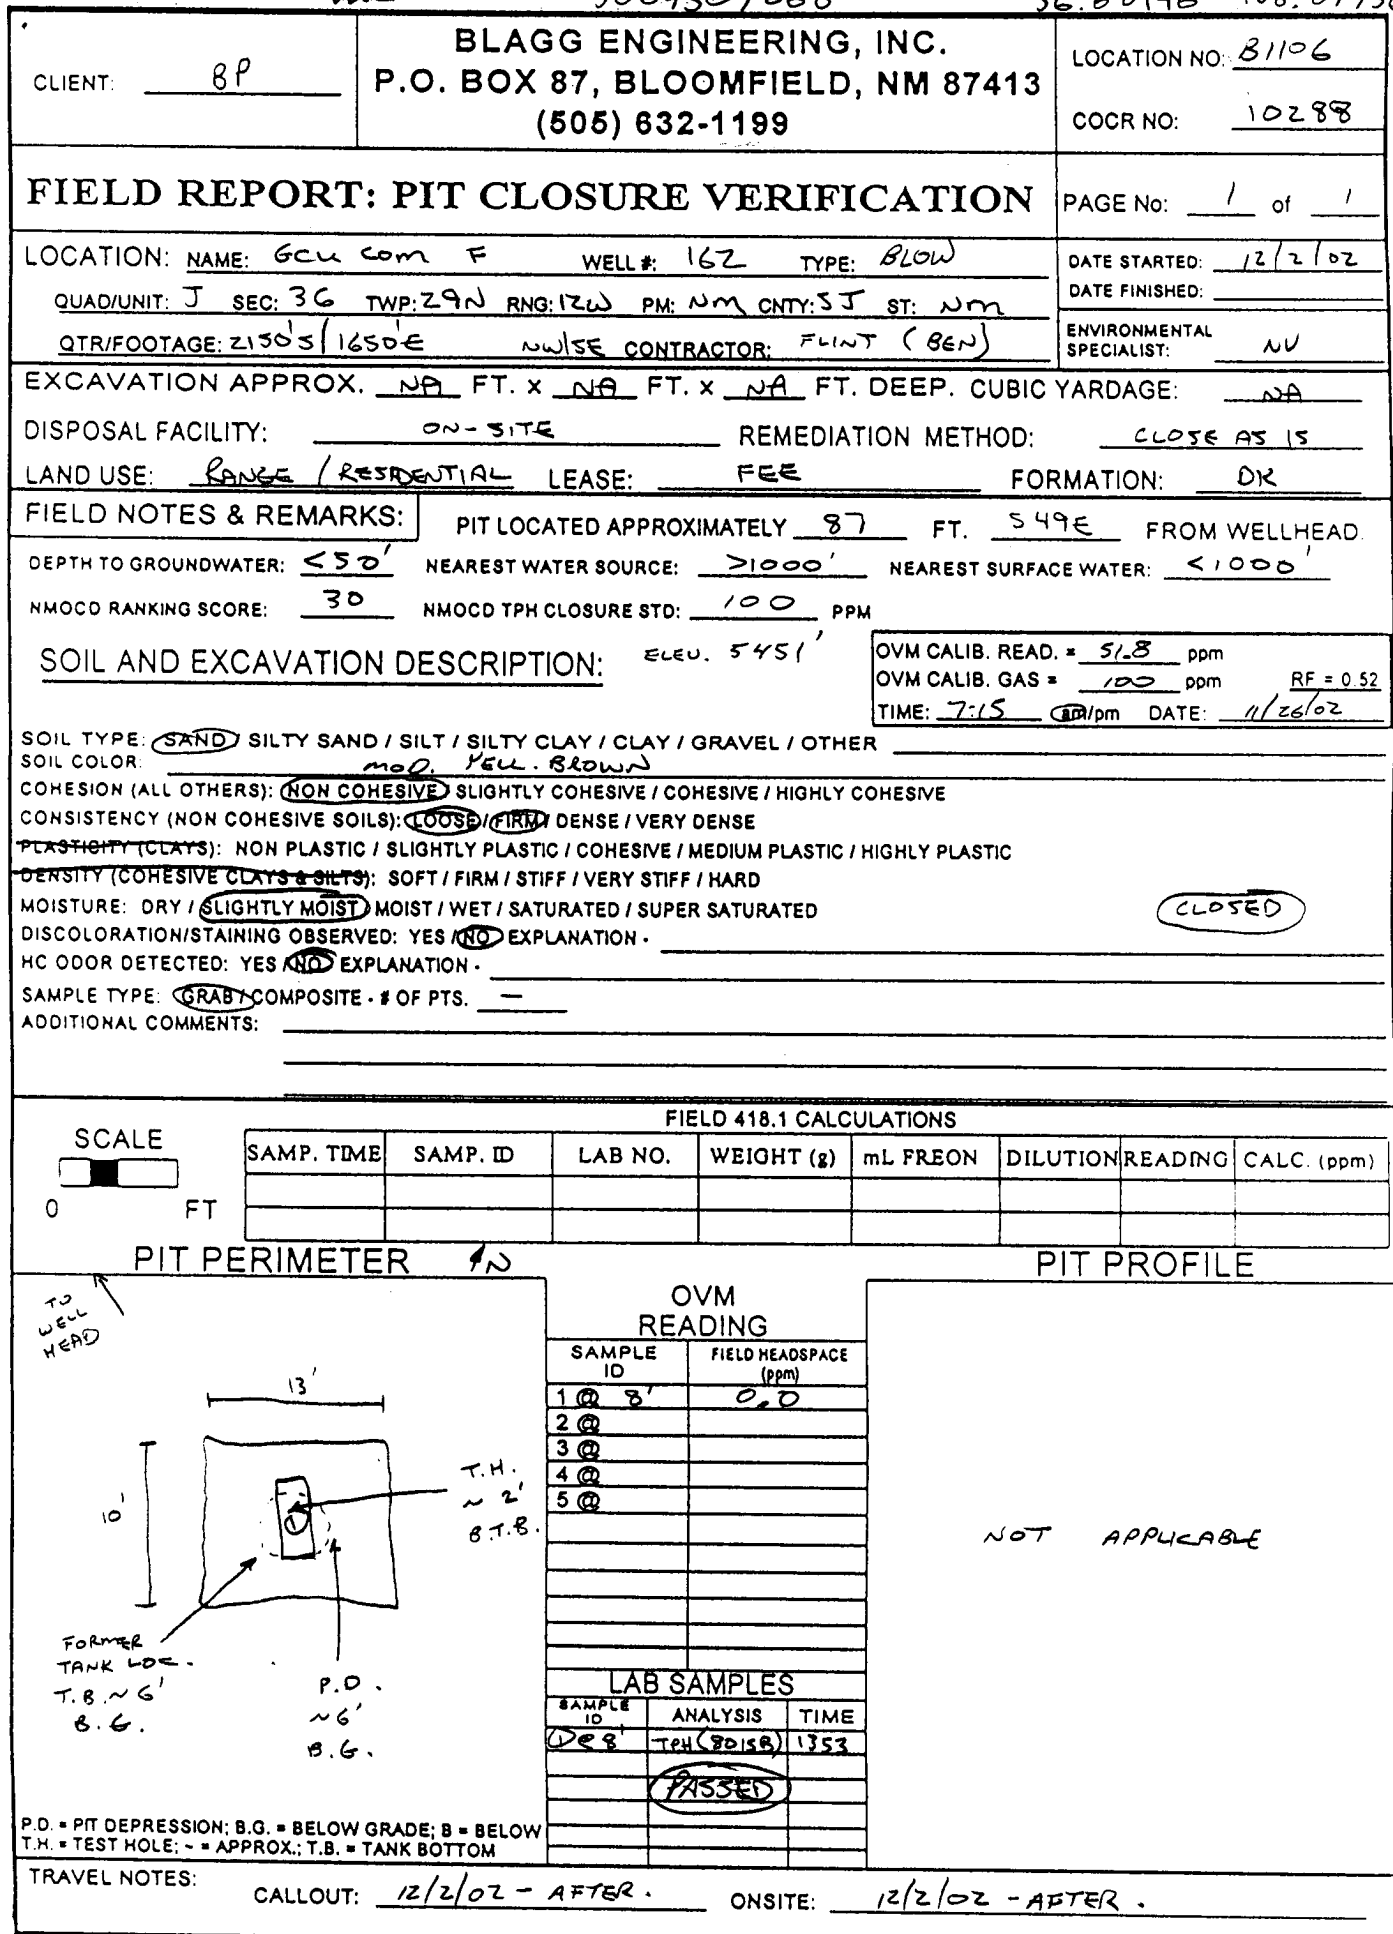 BLAGG ENGINEERING, INC.
P.O. BOX 87, BLOOMFIELD, NM 87413
(505) 632-1199
CLIENT: BP
LOCATION NO: B1106
COCR NO: 10288
FIELD REPORT: PIT CLOSURE VERIFICATION
PAGE No: 1 of 1
LOCATION: NAME: GCU COM F WELL #: 162 TYPE: BLOW
QUAD/UNIT: J SEC: 36 TWP: 29N RNG: 12W PM: NM CNTY: SJ ST: NM
QTR/FOOTAGE: 2150'S/1650'E NW/SE CONTRACTOR: FLINT (BEN)
DATE STARTED: 12/2/02
DATE FINISHED:
ENVIRONMENTAL
SPECIALIST: NV
EXCAVATION APPROX. NA FT. x NA FT. x NA FT. DEEP. CUBIC YARDAGE: NA
DISPOSAL FACILITY: ON-SITE REMEDIATION METHOD: CLOSE AS IS
LAND USE: RANGE / RESIDENTIAL LEASE: FEE FORMATION: DK
FIELD NOTES & REMARKS: PIT LOCATED APPROXIMATELY 87 FT. S49E FROM WELLHEAD.
DEPTH TO GROUNDWATER: <50' NEAREST WATER SOURCE: >1000' NEAREST SURFACE WATER: <1000'
NMOCD RANKING SCORE: 30 NMOCD TPH CLOSURE STD: 100 PPM
SOIL AND EXCAVATION DESCRIPTION: ELEV. 5451'
OVM CALIB. READ. = 51.8 ppm
OVM CALIB. GAS = 100 ppm RF = 0.52
TIME: 7:15 am/pm DATE: 11/26/02
SOIL TYPE: SAND / SILTY SAND / SILT / SILTY CLAY / CLAY / GRAVEL / OTHER
SOIL COLOR: MOD. YELL. BROWN
COHESION (ALL OTHERS): NON COHESIVE / SLIGHTLY COHESIVE / COHESIVE / HIGHLY COHESIVE
CONSISTENCY (NON COHESIVE SOILS): LOOSE / FIRM / DENSE / VERY DENSE
PLASTICITY (CLAYS): NON PLASTIC / SLIGHTLY PLASTIC / COHESIVE / MEDIUM PLASTIC / HIGHLY PLASTIC
DENSITY (COHESIVE CLAYS & SILTS): SOFT / FIRM / STIFF / VERY STIFF / HARD
MOISTURE: DRY / SLIGHTLY MOIST / MOIST / WET / SATURATED / SUPER SATURATED
CLOSED
DISCOLORATION/STAINING OBSERVED: YES / NO EXPLANATION -
HC ODOR DETECTED: YES / NO EXPLANATION -
SAMPLE TYPE: GRAB / COMPOSITE - # OF PTS. —
ADDITIONAL COMMENTS:
FIELD 418.1 CALCULATIONS
SCALE
0 FT
SAMP. TIME SAMP. ID LAB NO. WEIGHT (g) mL FREON DILUTION READING CALC. (ppm)
PIT PERIMETER N
PIT PROFILE
TO
WELL
HEAD
13'
10'
1
T.H.
~ 2'
B.T.B.
FORMER
TANK LOC.
T.B. ~ 6'
B.G.
P.D.
~6'
B.G.
OVM
READING
SAMPLE ID FIELD HEADSPACE (ppm)
1 @ 8' 0.0
2 @
3 @
4 @
5 @
LAB SAMPLES
SAMPLE ID ANALYSIS TIME
1@8' TPH (8015B) 1353
PASSED
NOT APPLICABLE
P.D. = PIT DEPRESSION; B.G. = BELOW GRADE; B = BELOW
T.H. = TEST HOLE; ~ = APPROX.; T.B. = TANK BOTTOM
TRAVEL NOTES:
CALLOUT: 12/2/02 - AFTER. ONSITE: 12/2/02 - AFTER.